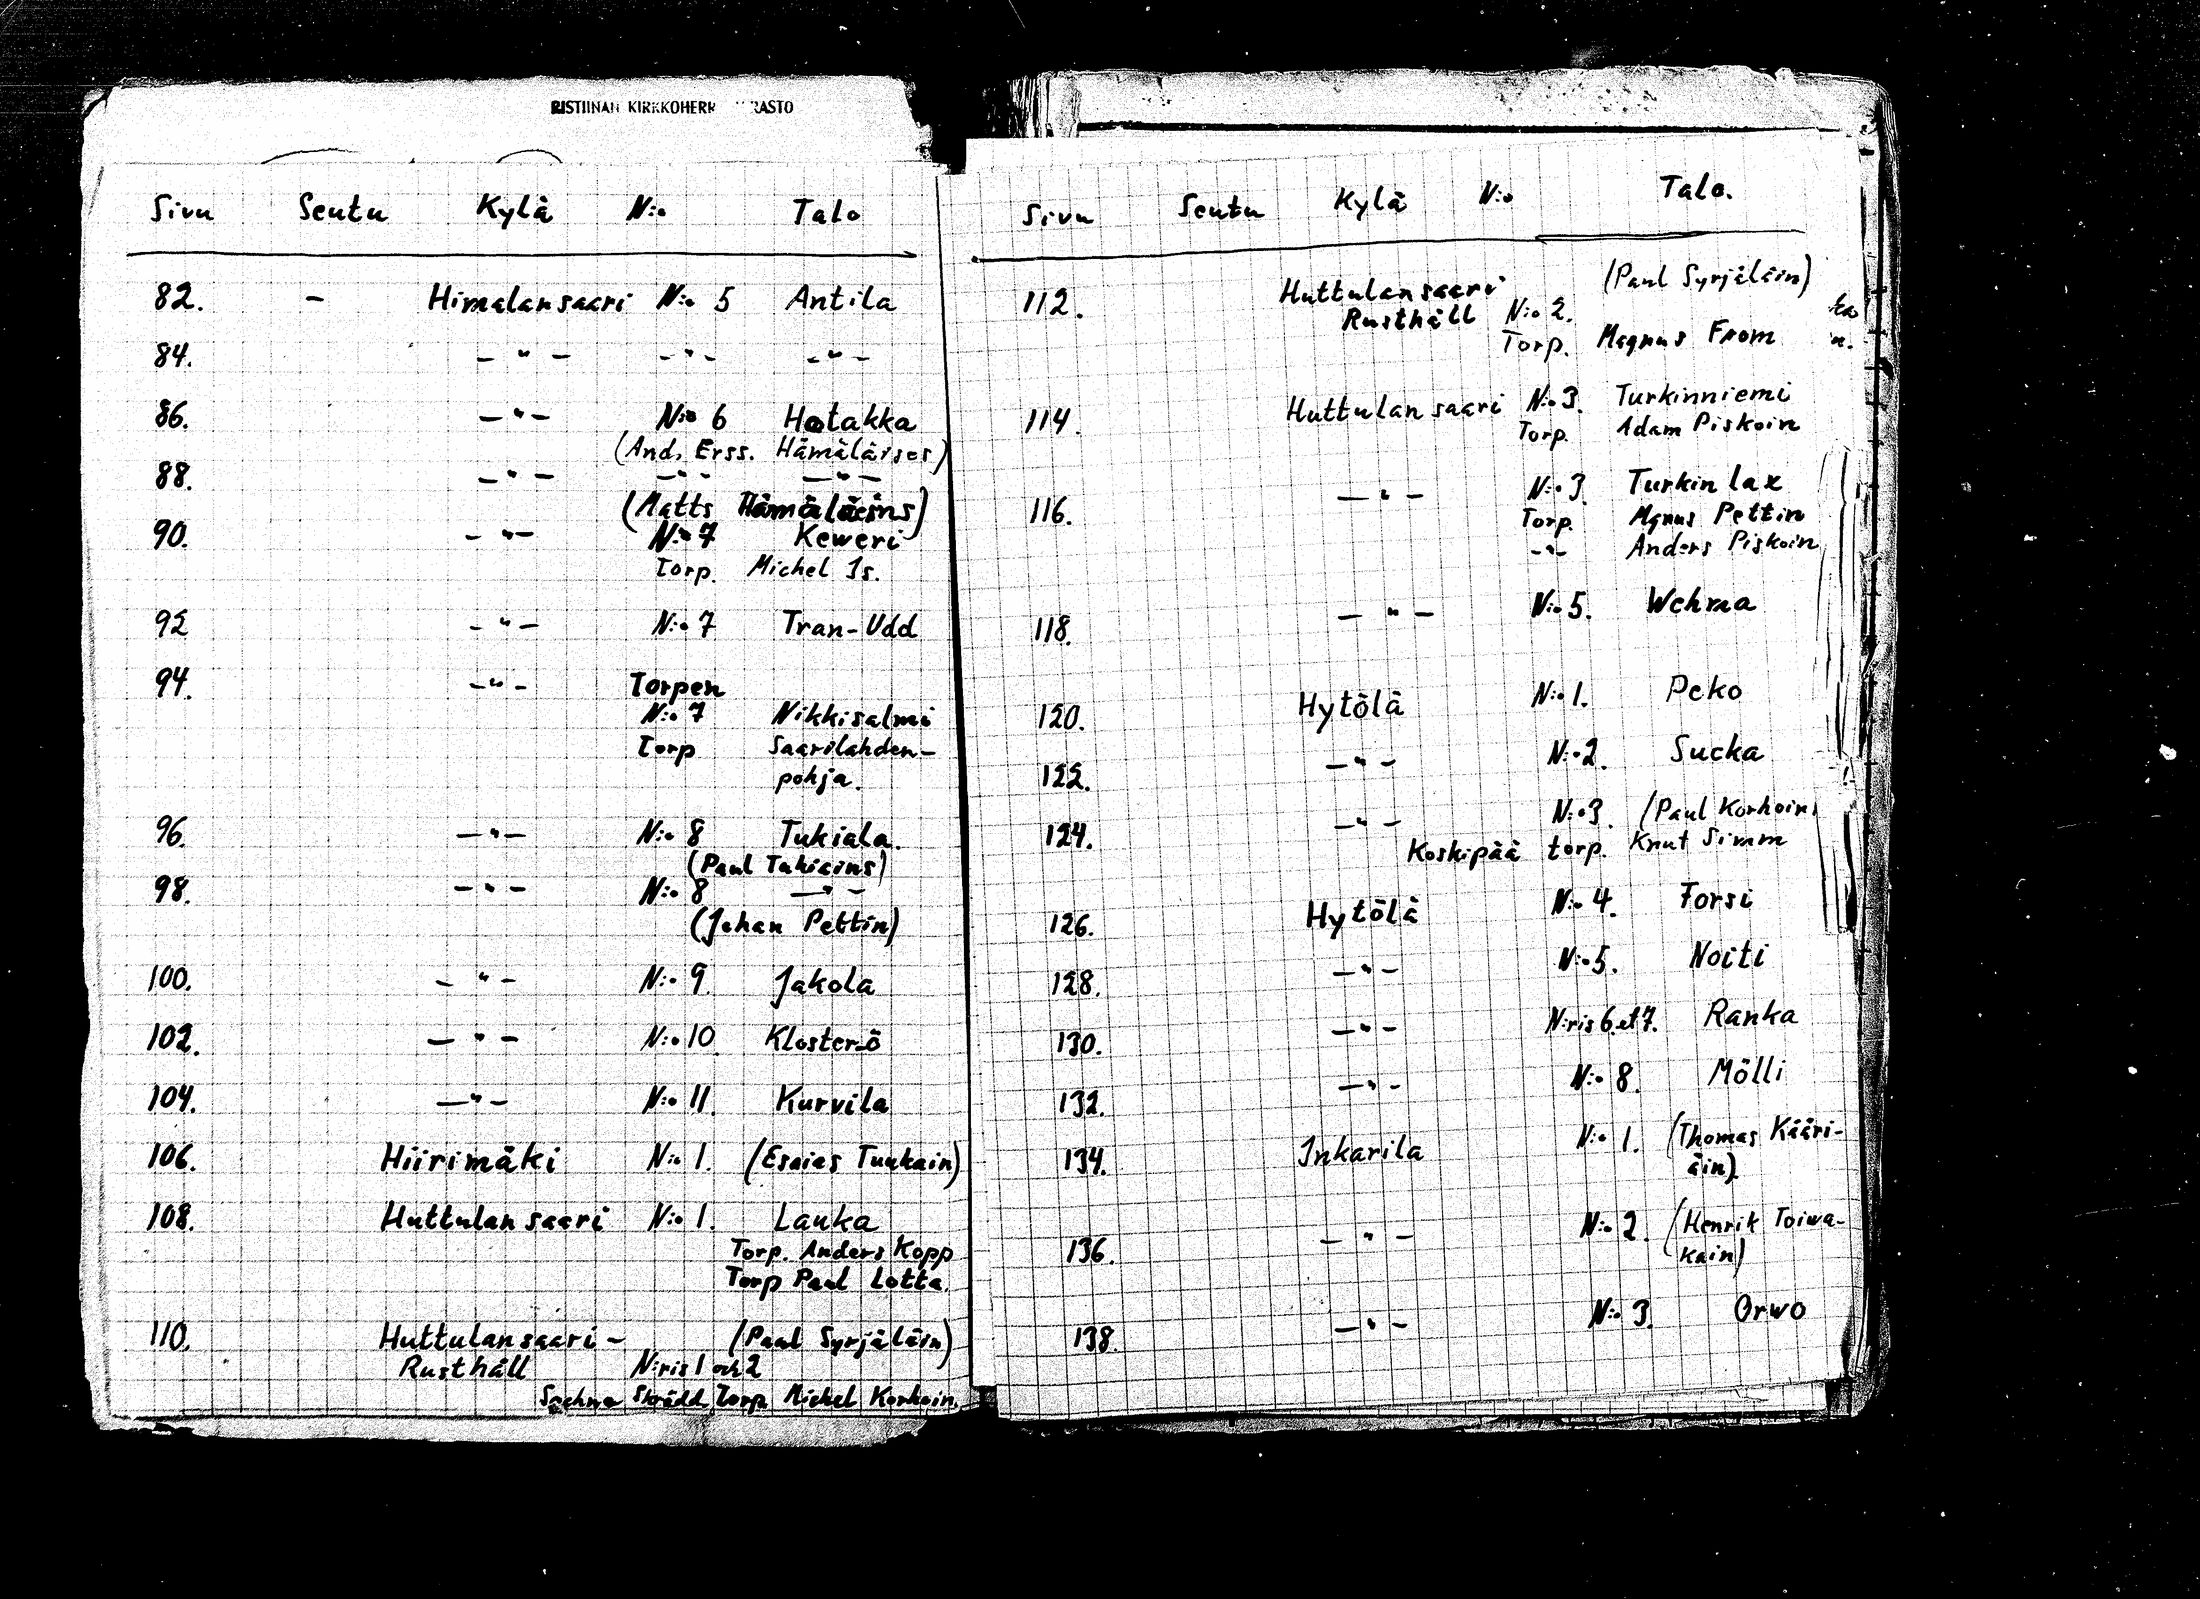 RISTIINAN KIRKKOHERR RASTO
Sivu Seutu Kylä N:o Talo
82. – Himalansaari N:o 5 Antila
84. – " – – " – – " –
86. – " – N:o 6 Hatakka
(And. Erss. Hämäläises)
88. – " – – " – – " –
(Matts Hämäläins)
90. – " – N:o 7 Keweri
Torp. Michel Is.
92 – " – N:o 7 Tran-Udd
94. – " – Torpen
N:o 7 Nikkisalmi
Torp Saarilahden-
pohja.
96. – " – N:o 8 Tukiala.
(Paul Tukiains)
98. – " – N:o 8 – " –
(Johan Pettin)
100. – " – N:o 9. Jakola
102. – " – N:o 10. Kloster-ö
104. – " – N:o 11. Kurvila
106. Hiirimäki N:o 1. (Esaias Tuukain)
108. Huttulansaari N:o 1. Lauka
Torp. Anders Kopp
Torp Paul Lotta.
110. Huttulansaari – (Paul Syrjäläin)
Rusthåll N:ris 1 och 2
Sockne Skrädd. Torp. Michel Korhoin.
Sivu Seutu Kylä N:o Talo.
112. Huttulansaari (Paul Syrjäläin)
Rusthåll N:o 2.
Torp. Magnus From
114. Huttulansaari N:o 3. Turkinniemi
Torp. Adam Piskoin
116. – " – N:o 3. Turkin lax
Torp. Magnus Pettin
– " – Anders Piskoin
118. – " – N:o 5. Wehma
120. Hytölä N:o 1. Peko
122. – " – N:o 2. Sucka
124. – " – N:o 3. (Paul Korhoin)
Koskipää torp. Knut Simm
126. Hytölä N:o 4. Forsi
128. – " – N:o 5. Noiti
130. – " – N:ris 6 et 7. Ranka
132. – " – N:o 8. Mölli
134. Inkarila N:o 1. (Thomas Kääri-
äin).
136. – " – N:o 2. (Henrik Toiwa-
kain)
138. – " – N:o 3. Orwo